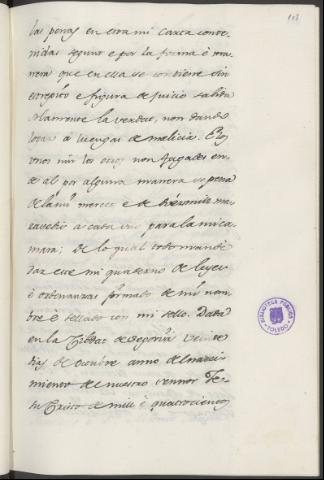 113
las penas en esta mi Carta conte-
nidas segunt e por la forma é ma-
nera que en ella se contiene sin
estrepito e figura de juicio sabida
solamente la verdat, non dando
logar á luengas de malicia. E los
unos nin los otros non fagades en-
de al por alguna manera so pena
de la mi merced e de dies mil ma-
ravedis a cada uno para la mi ca-
mara; de lo qual todo mandé
dar este mi quaderno de leyes
é ordenanzas firmado de mi nom-
bre é sellado con mi sello. Data
en la Cibdat de Segovia veinte
dias de Octubre anno del nasci-
miento de nuestro sennor Je-
su Cristo de mill é quatrocientos
BIBLIOTECA PUBLICA
TOLEDO